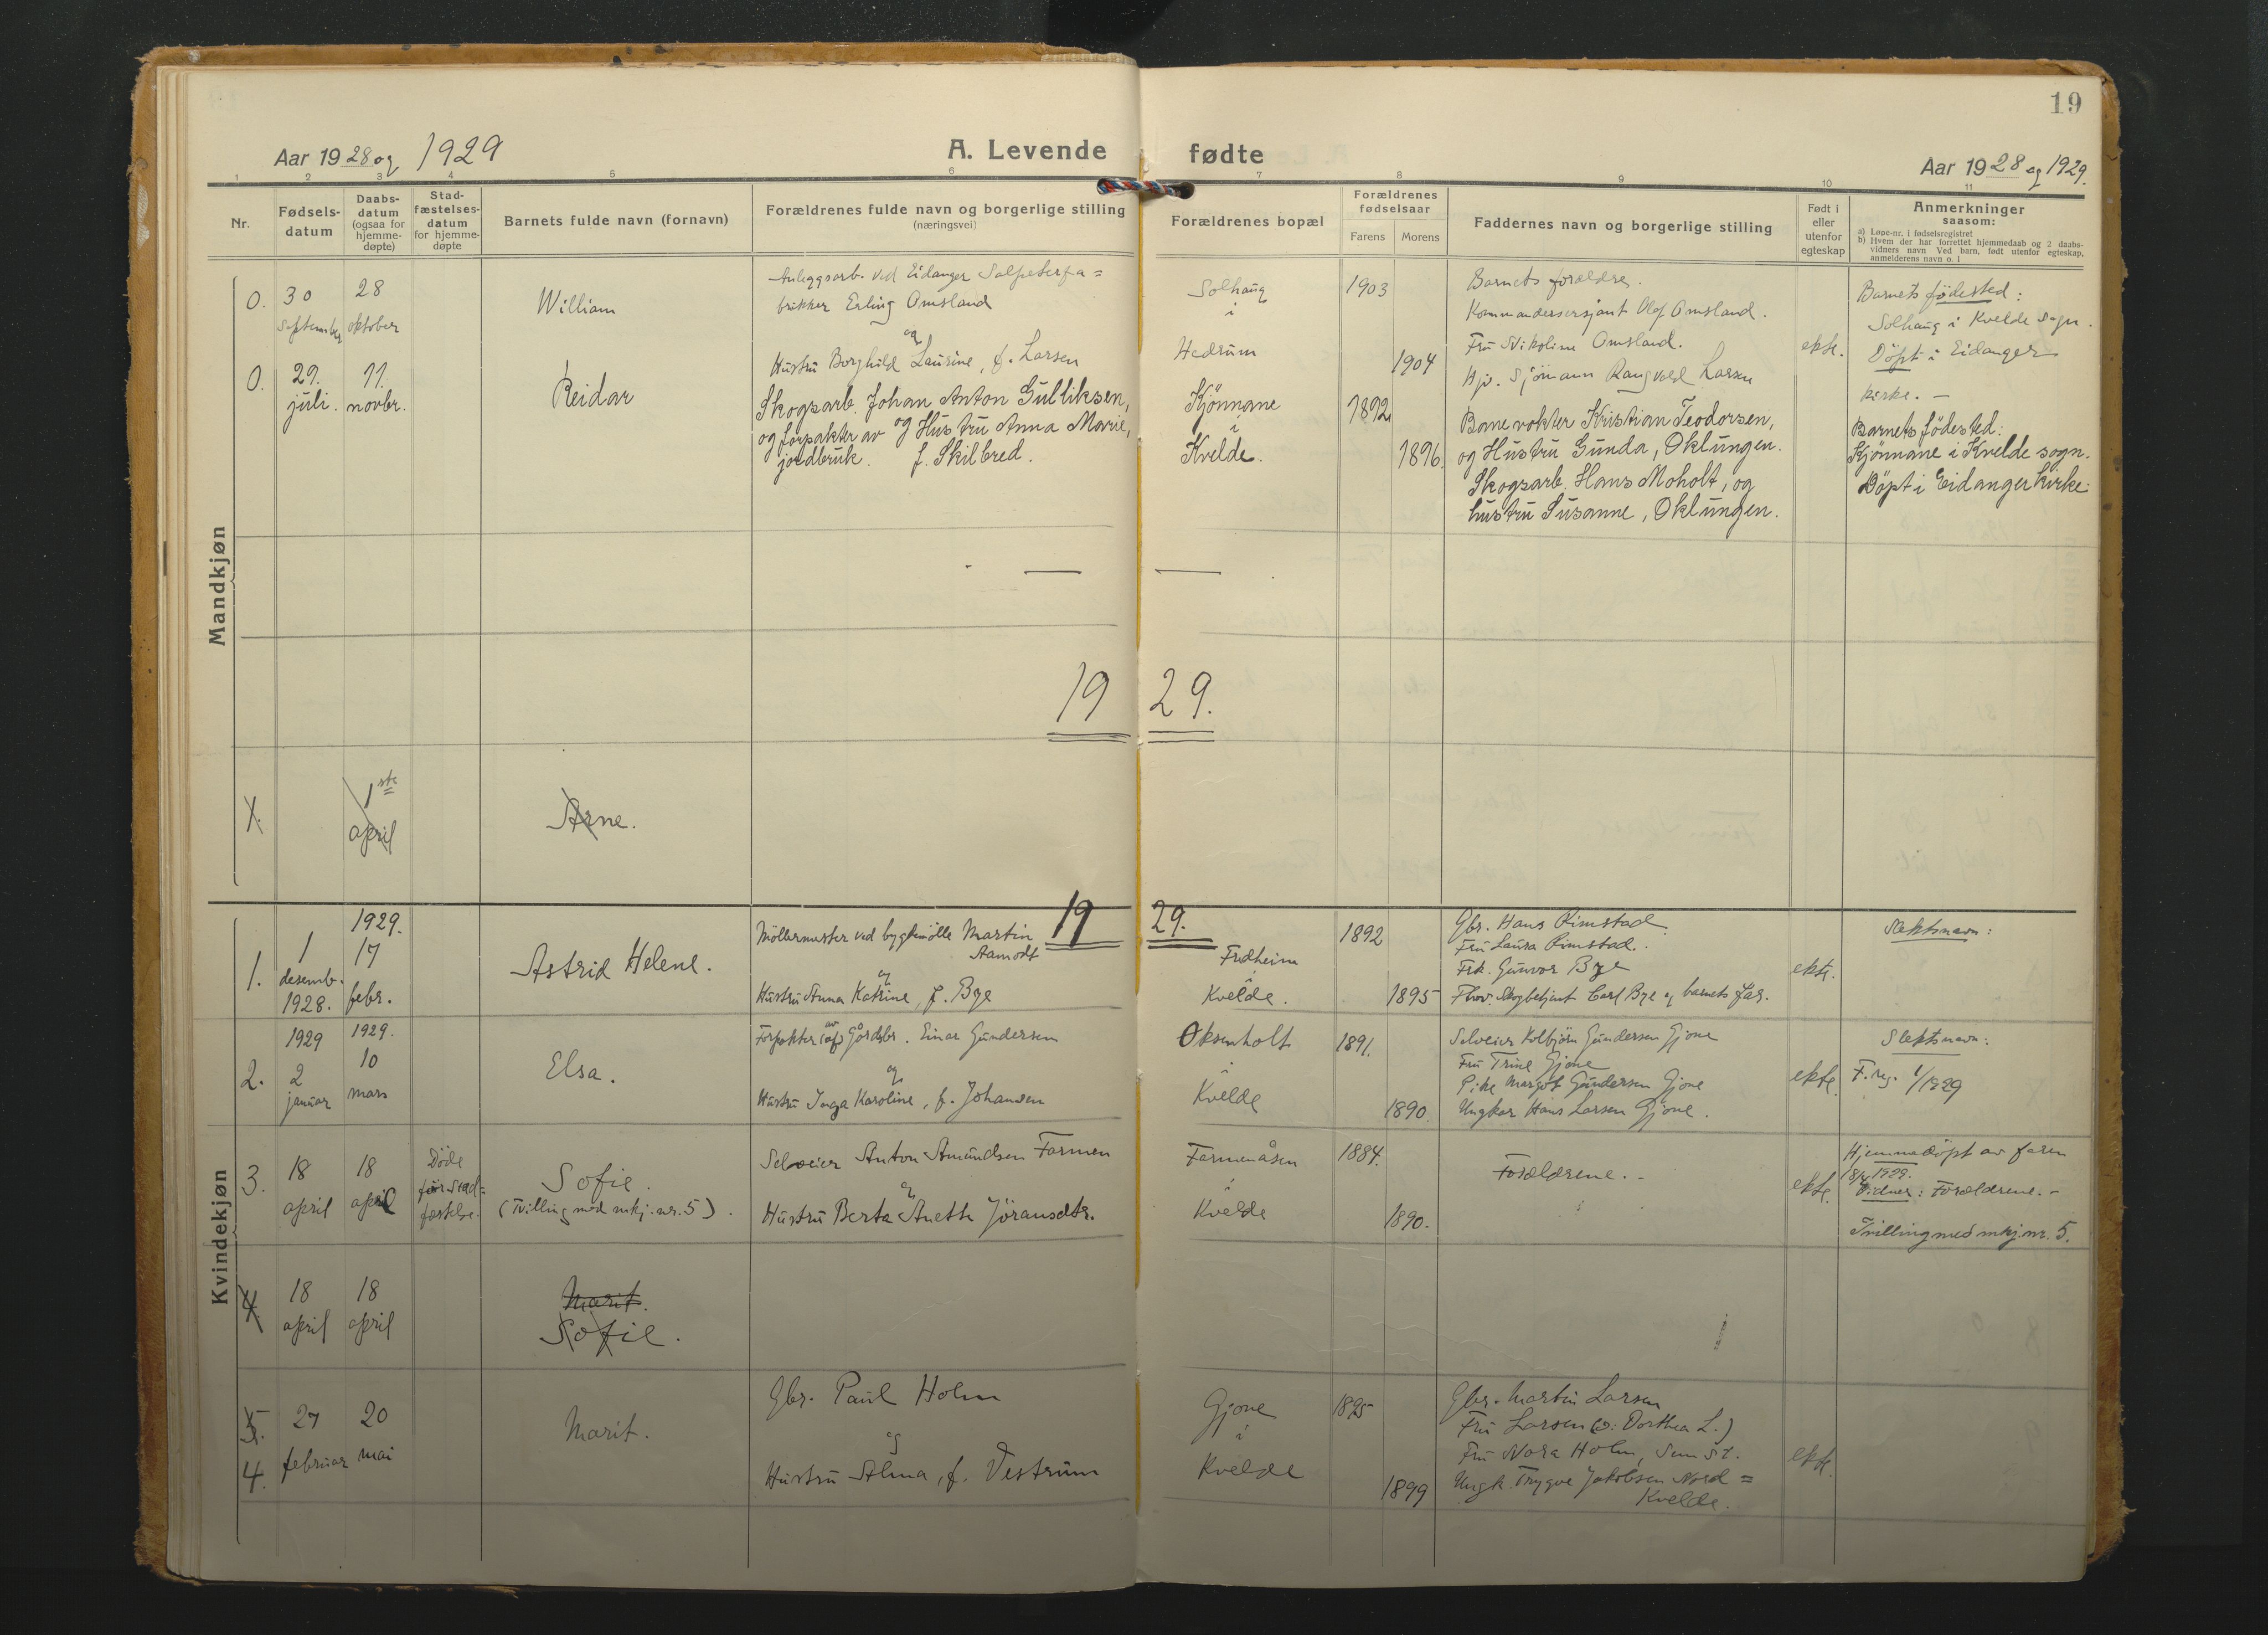 19
Aar 1928 og 1929
A. Levende fødte
Aar 1928 og 1929.
1 2 3 4 5 6 7 8 9 10 11
Nr.
Fødsels-
datum
Daabs-
datum
(ogsaa for
hjemme-
døpte)
Stad-
fæstelses-
datum
for hjemme-
døpte
Barnets fulde navn (fornavn)
Forældrenes fulde navn og borgerlige stilling
(næringsvei)
Forældrenes bopæl
Forældrenes
fødselsaar
Farens Morens
Faddernes navn og borgerlige stilling
Født i
eller
utenfor
egteskap
Anmerkninger
saasom:
a) Løpe-nr. i fødselsregistret
b) Hvem der har forrettet hjemmedaab og 2 daabs-
vidners navn Ved barn, født utenfor egteskap,
anmelderens navn o. l
Mandkjøn
0.
30
september
28
oktober
William
Anleggsarb. ved Eidanger Salpeterfa=
brikker Erling Omsland
og
Hustru Borghild Laurine, f. Larsen
Solhaug
i
Hedrum
1903
1904
Barnets forældre.
Kommandersersjant Olaf Omsland.
Fru Nikoline Omsland.
Hjv. Sjömann Rangvald Larsen
ekte.
Barnets födested:
Solhaug i Kvelde sogn.
Döpt i Eidanger
kirke. –
0.
29.
juli.
11.
novbr.
Reidar
Skogsarb. Johan Anton Gulliksen,
og forpakter av og Hustru Anna Marie,
jordbruk. f. Skilbred.
Kjönnane
i
Kvelde.
1892
1896.
Banevokter Kristian Teodorsen,
og Hustru Gunda, Oklungen.
Skogsarb. Hans Moholt, og
hustru Susanne, Oklungen.
Barnets födested:
Kjönnane i Kvelde sogn.
Döpt i Eidanger kirke.
19 29.
X.
1ste
april
Arne.
Kvindekjøn
19 29.
1.
1
desemb.
1928.
1929.
17
febr.
Astrid Helene.
Möllermester ved bygdemölle Martin
Aamodt
og
Hustru Anna Katrine, f. Bye
Fredheim
i
Kvelde.
1892
1895
Gbr. Hans Rimstad.
Fru Laura Rimstad.
Frk. Gunvor Bye
Fhv. Skogbetjent Carl Bye og barnets far.
ekte.
Slektsnavn:
2.
1929
2
januar
1929.
10
mars
Elsa.
Forpakter (af) av Gårdsbr. Einar Gundersen
og
Hustru Inga Karoline, f. Johansen
Oksenholt
i
Kvelde
1891.
1890.
Selveier Kolbjörn Gundersen Gjone
Fru Trine Gjone
Pike Margot Gundersen Gjone
Ungkar Hans Larsen Gjone.
ekte.
Slektsnavn:
F. reg. 1/1929
3.
18
april
18
april
Döde
för Stad=
fæstelse.
Sofie.
(Tvilling med mkj. nr. 5).
Selveier Anton Amundsen Farmen
og
Hustru Berta Anette Jöransdtr.
Farmenåsen
i
Kvelde
1884.
1890.
Forældrene. –
ekte.
Hjemmedöpt av faren
18/4 1929.
Vidner: Forældrene. –
Tvilling med mkj. nr. 5.
4.
18
april
18
april
Marit.
Sofie.
5.
4.
27
februar
20
mai
Marit.
Gbr. Paul Holm
og
Hustru Alma, f. Vestrum
Gjone
i
Kvelde
1895
1899
Gbr. Martin Larsen
Fru Larsen (o: Dorthea L.)
Fru Nora Holm, Sem st.
Ungk. Trygve Jakobsen Nord=
Kvelde.
ekte.